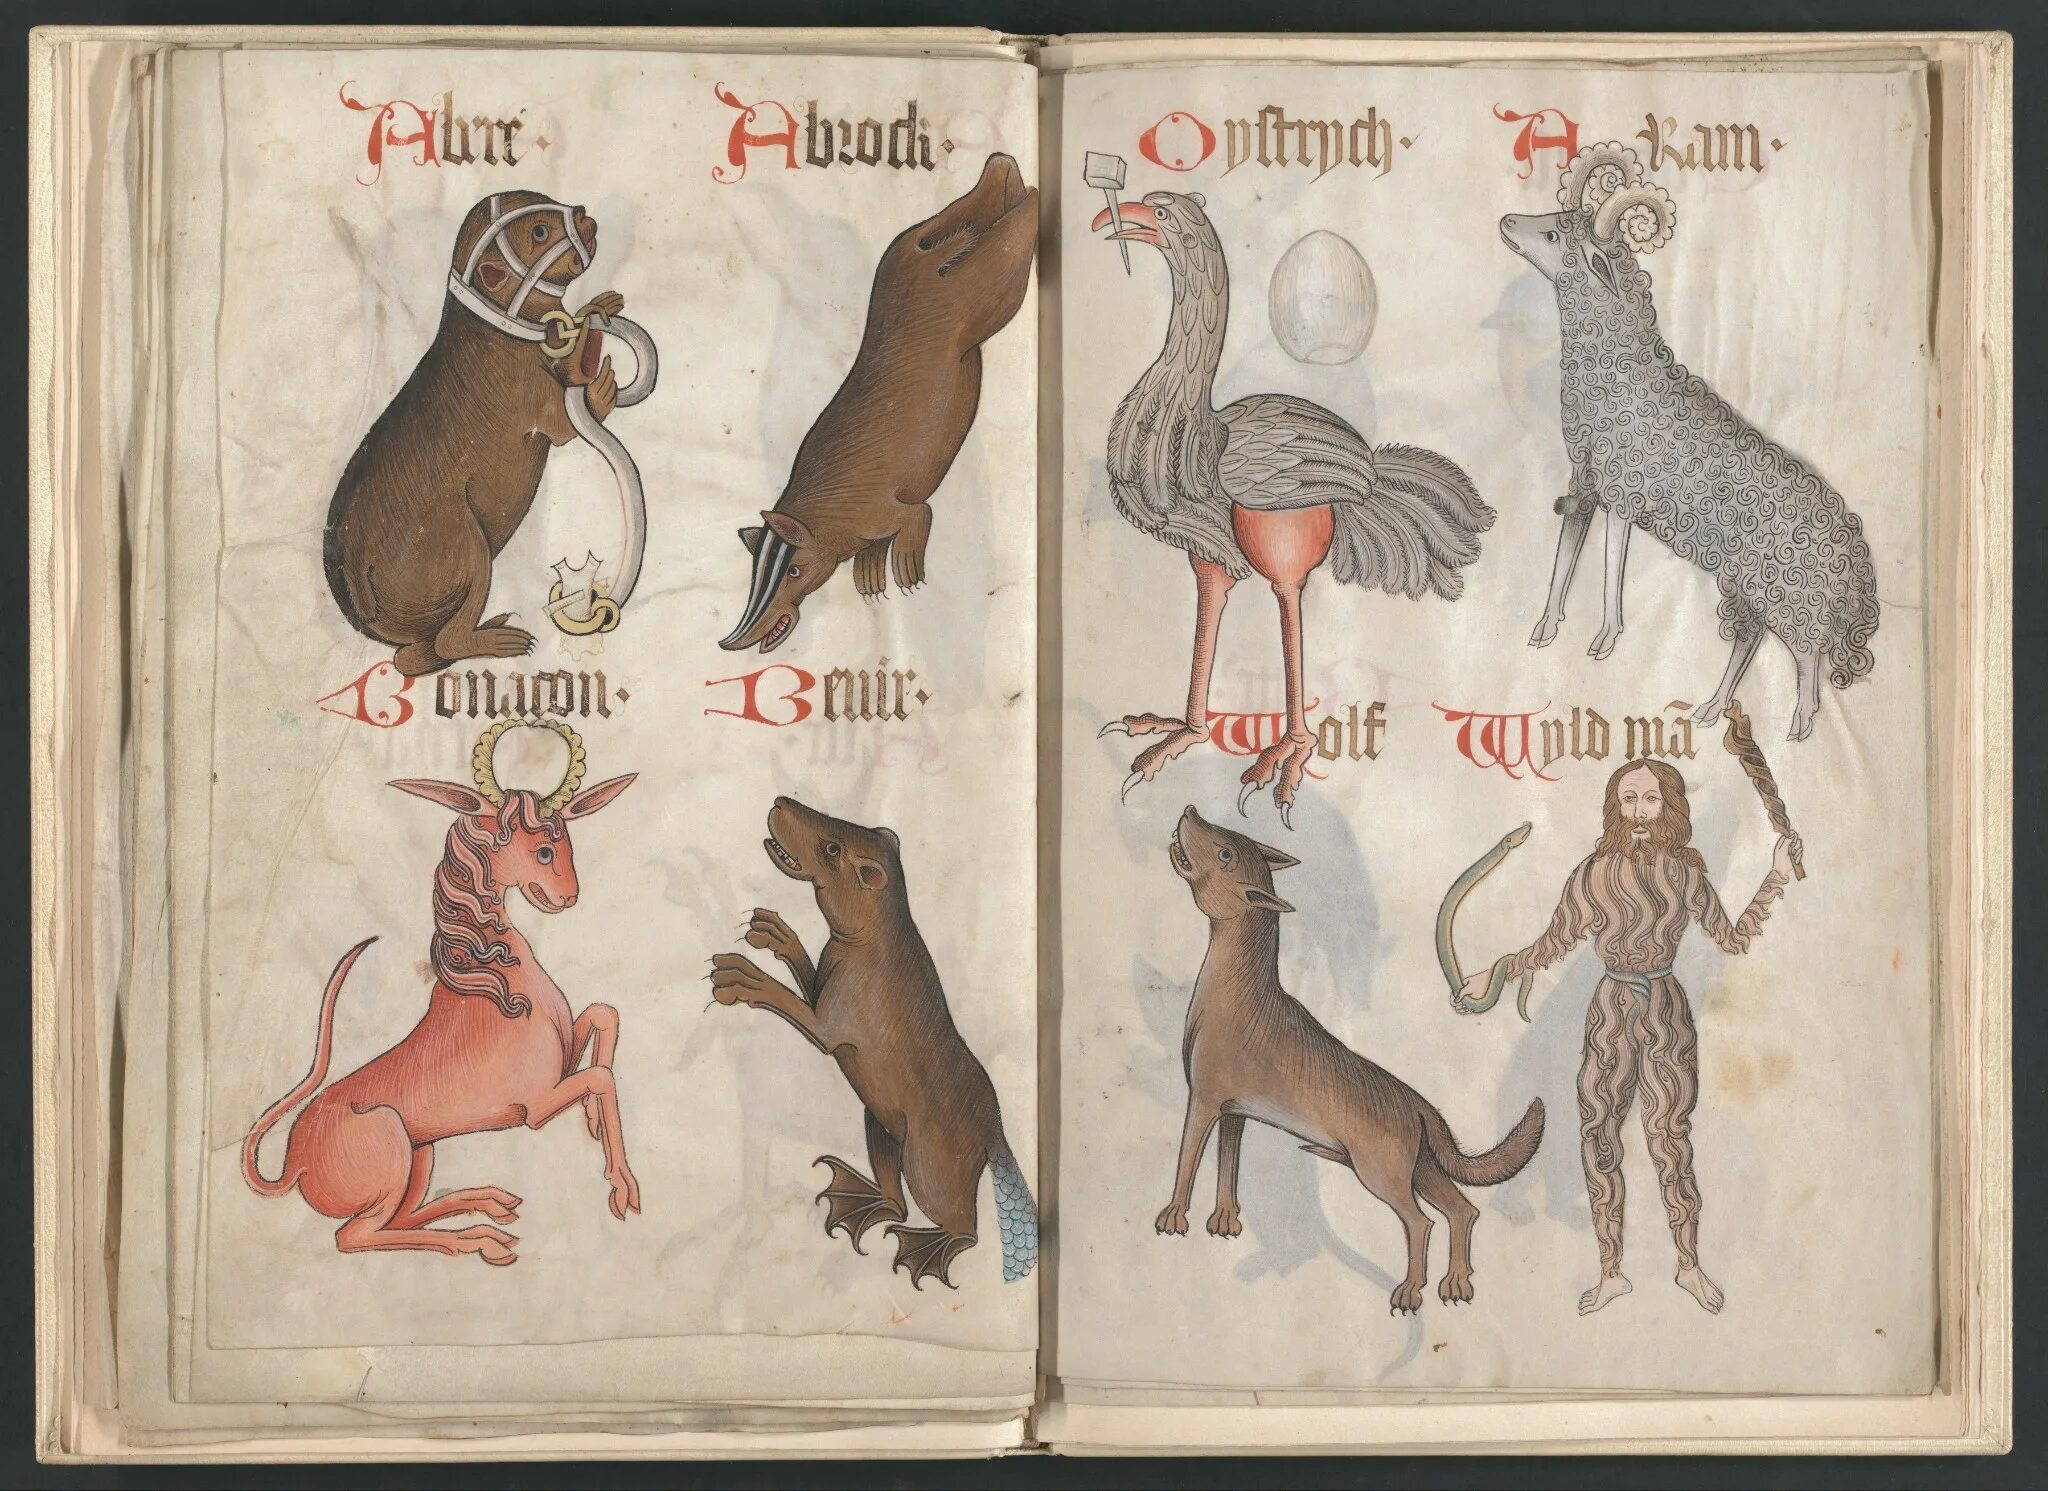 A
A brock ·
Bonacon ·
Beuir ·
Oystrych ·
A Ram ·
Wolf
Wyld mã
16